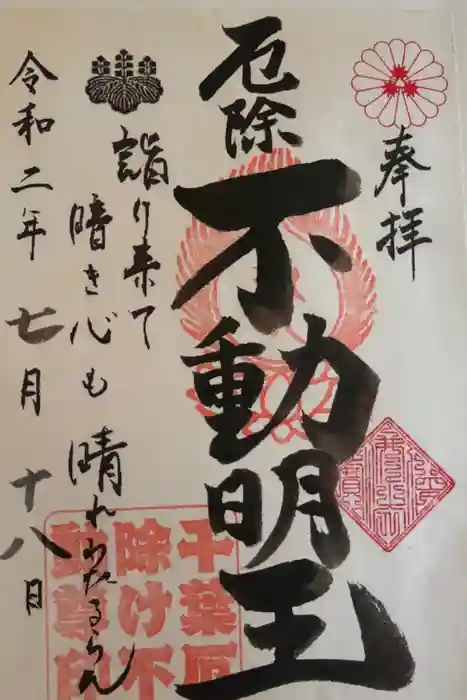 奉拝
厄除
不動明王
詣り来て
暗き心も
晴れわたるらん
令和二年七月十八日
千葉厄
除け不
動尊印